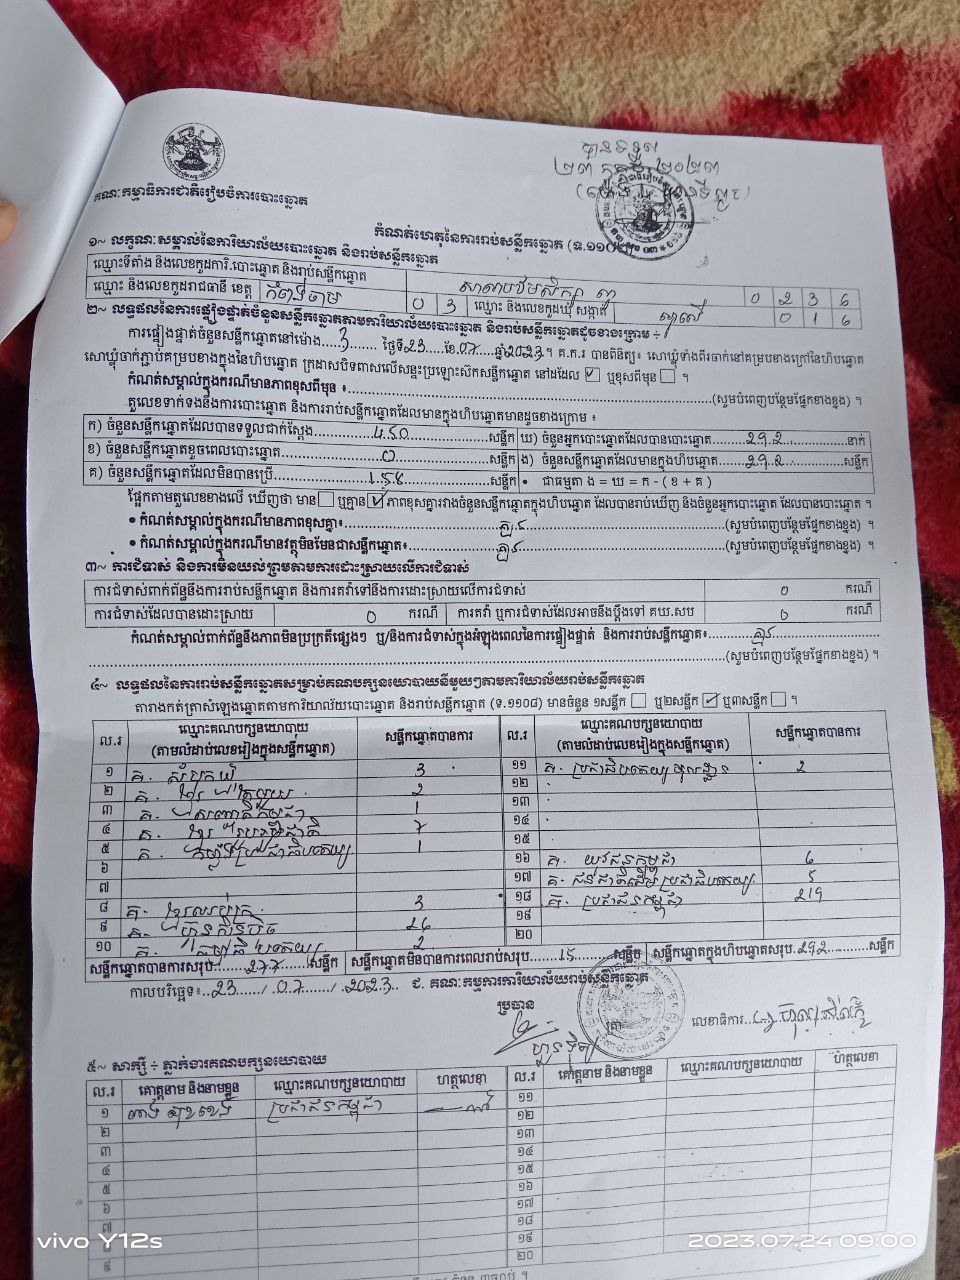 គណៈកម្មាធិការជាតិរៀបចំការបោះឆ្នោត
បានទទួល
កំណត់ហេតុនៃការរាប់សន្លឹកឆ្នោត (ទ.១១០
១~ លក្ខណៈសម្គាល់នៃការិយាល័យបោះឆ្នោត និងរាប់សន្លឹកឆ្នោត
ឈ្មោះទីតាំង និងលេខកូដការិ.បោះឆ្នោត និងរាប់សន្លឹកឆ្នោត 0 2 3 6
ឈ្មោះ និងលេខកូដរាជធានី ខេត្ត កំពង់ចាម 0 3 ឈ្មោះ និងលេខកូដឃុំ សង្កាត់ 0 1 6
២~ លទ្ធផលនៃការផ្ទៀងផ្ទាត់ចំនួនសន្លឹកឆ្នោតតាមការិយាល័យបោះឆ្នោត និងរាប់សន្លឹកឆ្នោតដូចខាងក្រោម ÷
ការផ្ទៀងផ្ទាត់ចំនួនសន្លឹកឆ្នោតនៅម៉ោង....3...... ថ្ងៃទី23.....ខែ.07....ឆ្នាំ2023។ គ.ក.រ បានពិនិត្យ៖ សោឃ្លុំទាំងពីរចាក់នៅគម្របខាងក្រៅនៃហិបឆ្នោត
សោឃ្លុំចាក់ភ្ជាប់គម្របខាងក្នុងនៃហិបឆ្នោត ក្រដាសបិទពាសលើសន្ទះប្រឡោះស៊កសន្លឹកឆ្នោត នៅដដែល ☑ ឬខុសពីមុន ☐ ។
កំណត់សម្គាល់ក្នុងករណីមានភាពខុសពីមុន ៖..........(សូមបំពេញបន្ថែមផ្នែកខាងខ្នង) ។
តួលេខទាក់ទងនឹងការបោះឆ្នោត និងការរាប់សន្លឹកឆ្នោតដែលមានក្នុងហិបឆ្នោតមានដូចខាងក្រោម ៖
ក) ចំនួនសន្លឹកឆ្នោតដែលបានទទួលជាក់ស្តែង..........450..........សន្លឹក ឃ) ចំនួនអ្នកបោះឆ្នោតដែលបានបោះឆ្នោត......292......នាក់
ខ) ចំនួនសន្លឹកឆ្នោតខូចពេលបោះឆ្នោត..........0..........សន្លឹក ង) ចំនួនសន្លឹកឆ្នោតដែលមានក្នុងហិបឆ្នោត......292......សន្លឹក
គ) ចំនួនសន្លឹកឆ្នោតដែលមិនបានប្រើ..........158..........សន្លឹក • ជាធម្មតា ង = ឃ = ក - ( ខ + គ )
ផ្អែកតាមតួលេខខាងលើ ឃើញថា មាន ☐ ឬគ្មាន ☑ ភាពខុសគ្នារវាងចំនួនសន្លឹកឆ្នោតក្នុងហិបឆ្នោត ដែលបានរាប់ឃើញ និងចំនួនអ្នកបោះឆ្នោត ដែលបានបោះឆ្នោត ។
• កំណត់សម្គាល់ក្នុងករណីមានភាពខុសគ្នា៖..........គ្មាន..........(សូមបំពេញបន្ថែមផ្នែកខាងខ្នង) ។
• កំណត់សម្គាល់ក្នុងករណីមានវត្ថុមិនមែនជាសន្លឹកឆ្នោត៖..........គ្មាន..........(សូមបំពេញបន្ថែមផ្នែកខាងខ្នង) ។
៣~ ការជំទាស់ និងការមិនយល់ព្រមតាមការដោះស្រាយលើការជំទាស់
ការជំទាស់ពាក់ព័ន្ធនឹងការរាប់សន្លឹកឆ្នោត និងការតវ៉ាទៅនឹងការដោះស្រាយលើការជំទាស់ 0 ករណី
ការជំទាស់ដែលបានដោះស្រាយ 0 ករណី ការតវ៉ា ឬការជំទាស់ដែលអាចនឹងប្តឹងទៅ គឃ.សប 0 ករណី
កំណត់សម្គាល់ពាក់ព័ន្ធនឹងភាពមិនប្រក្រតីផ្សេងៗ ឬ/និងការជំទាស់ក្នុងអំឡុងពេលនៃការផ្ទៀងផ្ទាត់ និងការរាប់សន្លឹកឆ្នោត៖..........គ្មាន..........
..........(សូមបំពេញបន្ថែមផ្នែកខាងខ្នង) ។
៤~ លទ្ធផលនៃការរាប់សន្លឹកឆ្នោតសម្រាប់គណបក្សនយោបាយនីមួយៗតាមការិយាល័យរាប់សន្លឹកឆ្នោត
តារាងកត់ត្រាសំឡេងឆ្នោតតាមការិយាល័យបោះឆ្នោត និងរាប់សន្លឹកឆ្នោត (ទ.១១០៨) មានចំនួន ១សន្លឹក ☐ ឬ២សន្លឹក ☑ ឬ៣សន្លឹក ☐ ។
ល.រ ឈ្មោះគណបក្សនយោបាយ (តាមលំដាប់លេខរៀងក្នុងសន្លឹកឆ្នោត) សន្លឹកឆ្នោតបានការ ល.រ ឈ្មោះគណបក្សនយោបាយ (តាមលំដាប់លេខរៀងក្នុងសន្លឹកឆ្នោត) សន្លឹកឆ្នោតបានការ
១ គ. 3 ១១ គ. ប្រជាធិបតេយ្យមូលដ្ឋាន 2
២ គ. ខ្មែរ 2 ១២
៣ គ. 1 ១៣
៤ គ. ខ្មែរ 7 ១៤
៥ គ. កម្លាំងប្រជាធិបតេយ្យ 1 ១៥
៦ ១៦ គ. យុវជនកម្ពុជា 6
៧ ១៧ គ. ជនជាតិដើមប្រជាធិបតេយ្យ 5
៨ គ. 3 ១៨ គ. ប្រជាជនកម្ពុជា 219
៩ គ. ហ៊្វុនស៊ិនប៉ិច 26 ១៩
១០ គ. 2 ២០
សន្លឹកឆ្នោតបានការសរុប.......277.......សន្លឹក សន្លឹកឆ្នោតមិនបានការពេលរាប់សរុប.......15.......សន្លឹក សន្លឹកឆ្នោតក្នុងហិបឆ្នោតសរុប..292..........សន្លឹក
កាលបរិច្ឆេទ៖..23....../.07......./.2023.. ជ. គណៈកម្មការការិយាល័យរាប់សន្លឹកឆ្នោត
ប្រធាន
លេខាធិការ
៥~ សាក្សី ÷ ភ្នាក់ងារគណបក្សនយោបាយ
ល.រ គោត្តនាម និងនាមខ្លួន ឈ្មោះគណបក្សនយោបាយ ហត្ថលេខា ល.រ គោត្តនាម និងនាមខ្លួន ឈ្មោះគណបក្សនយោបាយ ហត្ថលេខា
១ ប្រជាជនកម្ពុជា ១១
២ ១២
៣ ១៣
៤ ១៤
៥ ១៥
៦ ១៦
៧ ១៧
១៨
១៩
៩ ២០
vivo Y12s
2023.07.24 09:00